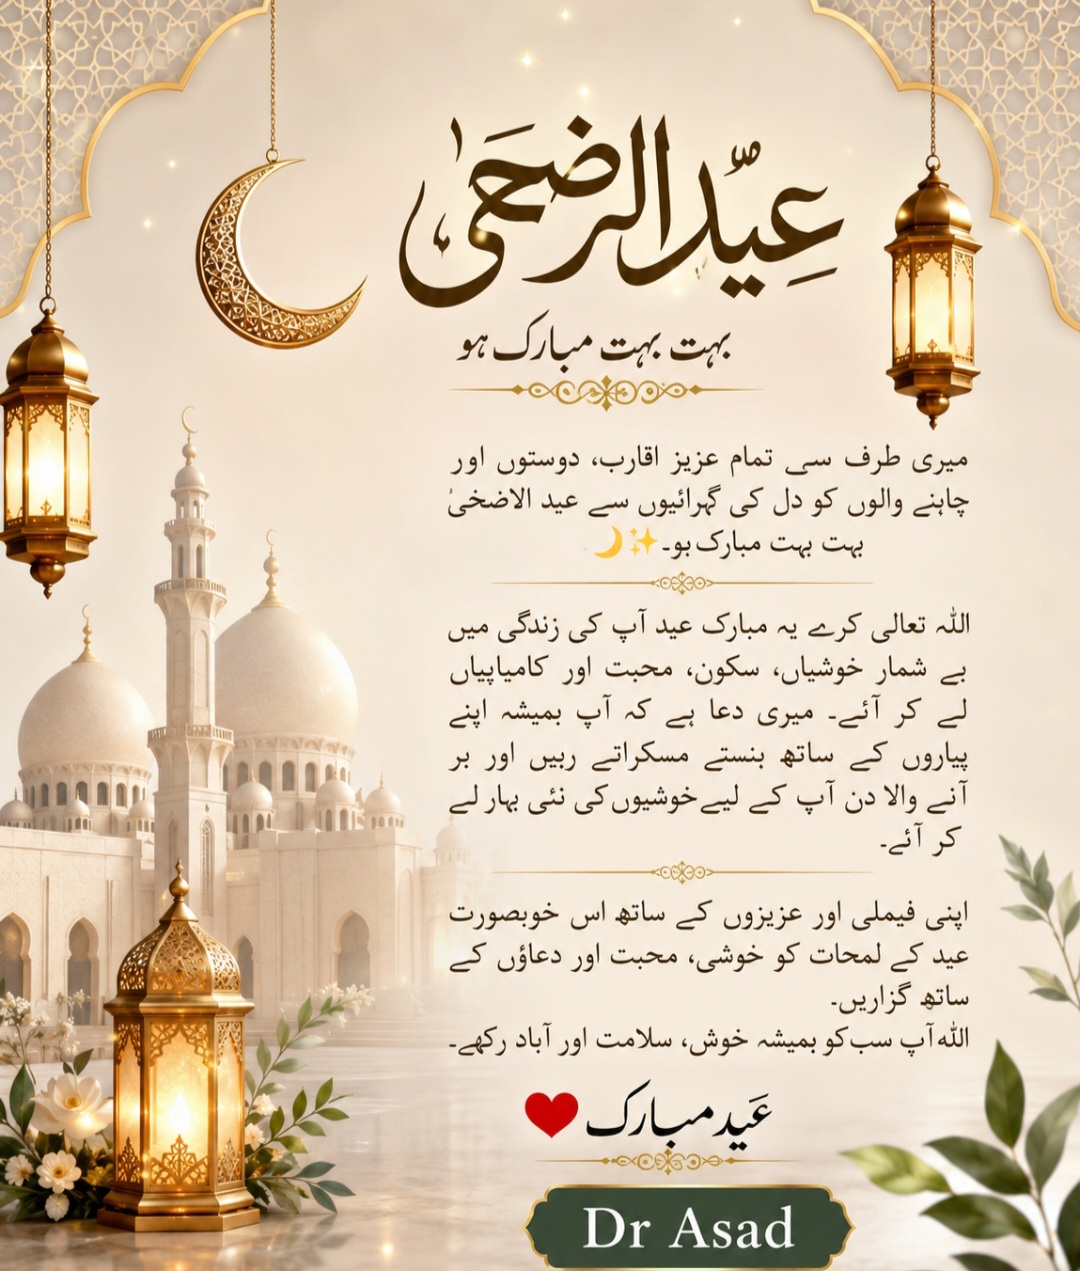 عِيّدالرضحَىٰ
بہت بہت مبارک ہو
میری طرف سی تمام عزیز اقارب، دوستوں اور
چاہنے والوں کو دل کی گہرائیوں سے عید الاضخیٰ
بہت بہت مبارک ہو۔✨🌙
اللہ تعالی کرے یہ مبارک عید آپ کی زندگی میں
بے شمار خوشیاں، سکون، محبت اور کامیاپیاں
لے کر آئے۔ میری دعا ہے کہ آپ ہمیشہ اپنے
پیاروں کے ساتھ ہنستے مسکراتے رہیں اور ہر
آنے والا دن آپ کے لیے خوشیوں کی نئی بہار لے
کر آئے۔
اپنی فیملی اور عزیزوں کے ساتھ اس خوبصورت
عید کے لمحات کو خوشی، محبت اور دعاؤں کے
ساتھ گزاریں۔
اللہ آپ سب کو ہمیشہ خوش، سلامت اور آباد رکھے۔
عَید مبارک ❤️
Dr Asad